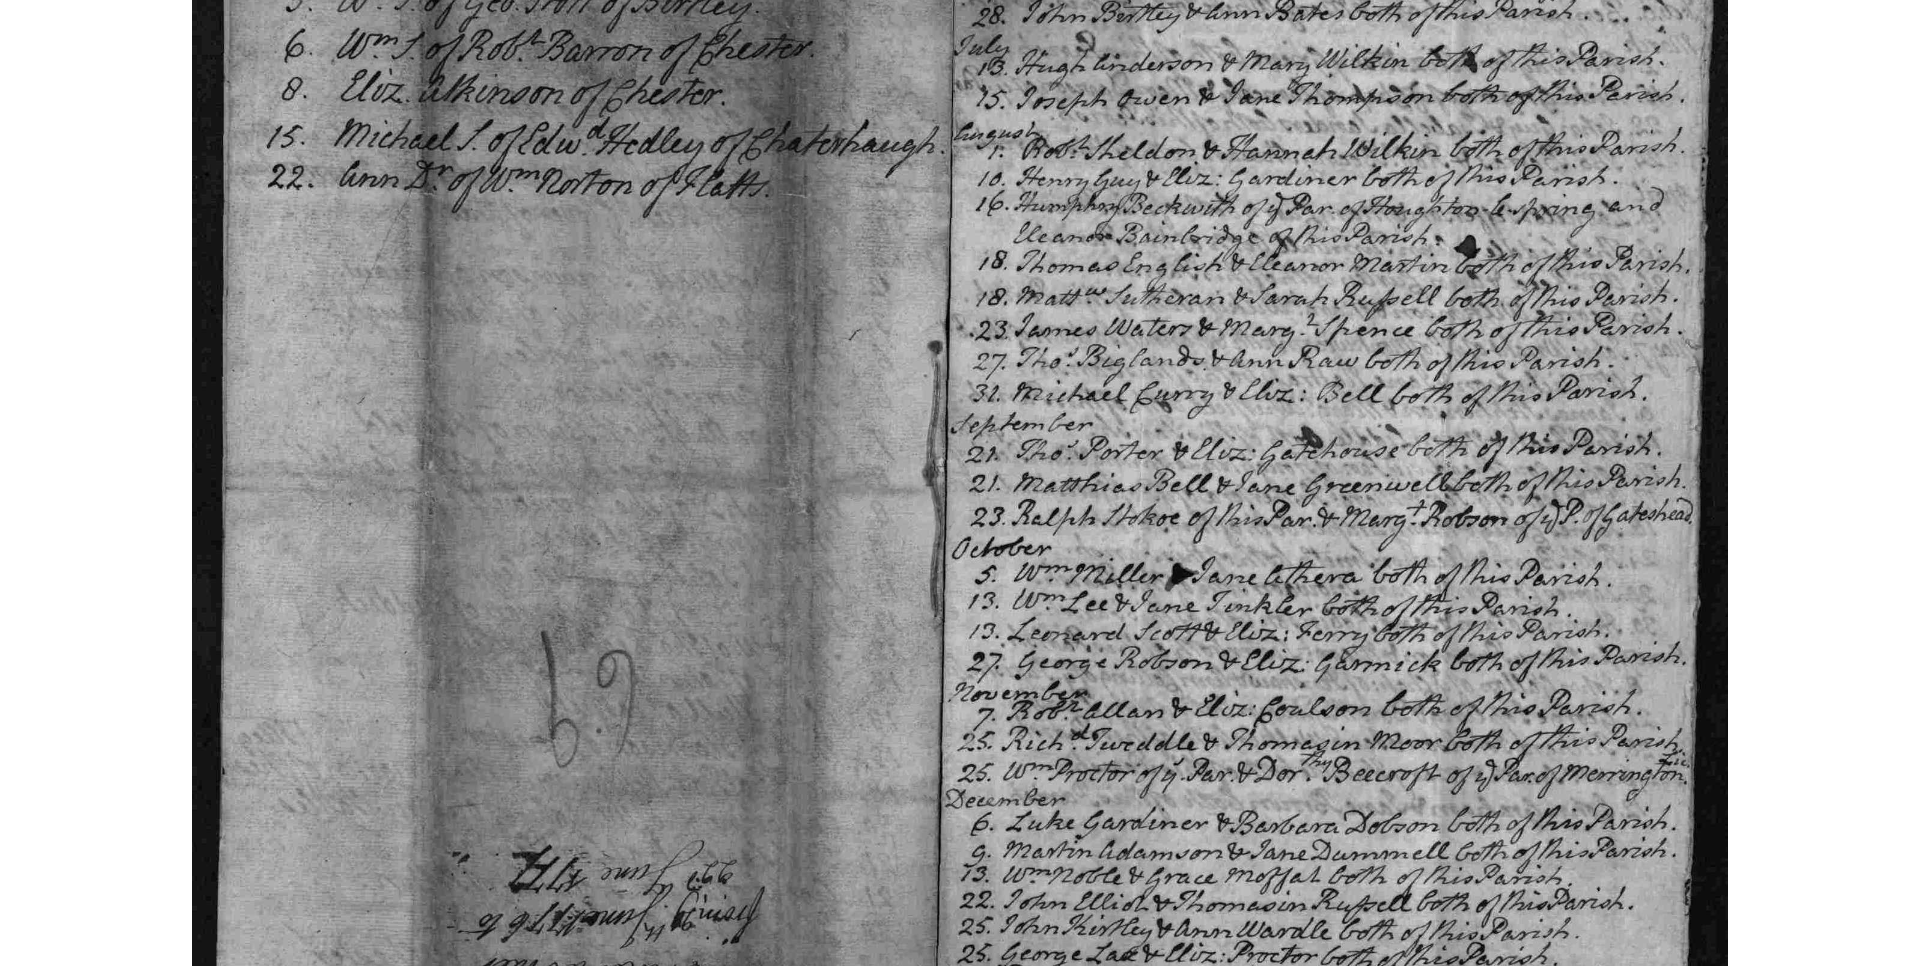 5. Wm. S. of Geo. of Birtley.
6. Wm. S. of Robt. Barron of Chester.
8. Eliz. Atkinson of Chester.
15. Michael S. of Edwd. Hedley of Chaterhaugh.
22. Ann Dr. of Wm. Norton of Flatts.
69
28. John Birtley & Ann Bates both of this Parish.
July
13. Hugh Anderson & Mary Wilkin both of this Parish.
15. Joseph Owen & Jane Thompson both of this Parish.
August
1. Robt. Sheldon & Hannah Wilkin both of this Parish.
10. Henry Guy & Eliz: Gardiner both of this Parish.
16. Humphry Beckwith of ye Par. of Houghton le Spring and
Eleanor Bainbridge of this Parish.
18. Thomas English & Eleanor Martin both of this Parish.
18. Mattw. Sutheran & Sarah Russell both of this Parish.
23. James Waters & Margt. Spence both of this Parish.
27. Thos. Biglands & Ann Raw both of this Parish.
31. Michael Curry & Eliz: Bell both of this Parish.
September
21. Thos. Porter & Eliz: Gatehouse both of this Parish.
21. Matthias Bell & Jane Greenwell both of this Parish.
23. Ralph Stokoe of this Par. & Margt. Robson of ye P. of Gateshead.
October
5. Wm. Miller Jane Athera both of this Parish.
13. Wm. Lee & Jane Tinkler both of this Parish.
13. Leonard Scott & Eliz: Ferry both of this Parish.
27. George Robson & Eliz: Garnick both of this Parish.
November
7. Robt. Allan & Eliz: Coulson both of this Parish.
25. Richd. Tweddle & Thomasin Moor both of this Parish.
25. Wm. Proctor of ys. Par. & Dorthy. Beecroft of ye Par. of Merrington.
December
6. Luke Gardiner & Barbara Dobson both of this Parish.
9. Martin Adamson & Jane Dummell both of this Parish.
13. Wm. Noble & Grace Moffat both of this Parish.
22. John Elliot & Thomasin Russell both of this Parish.
25. John Kirtley & Ann Wardle both of this Parish.
25. George Lax & Eliz: Proctor both of this Parish.
June 1776 to
22d June 1777